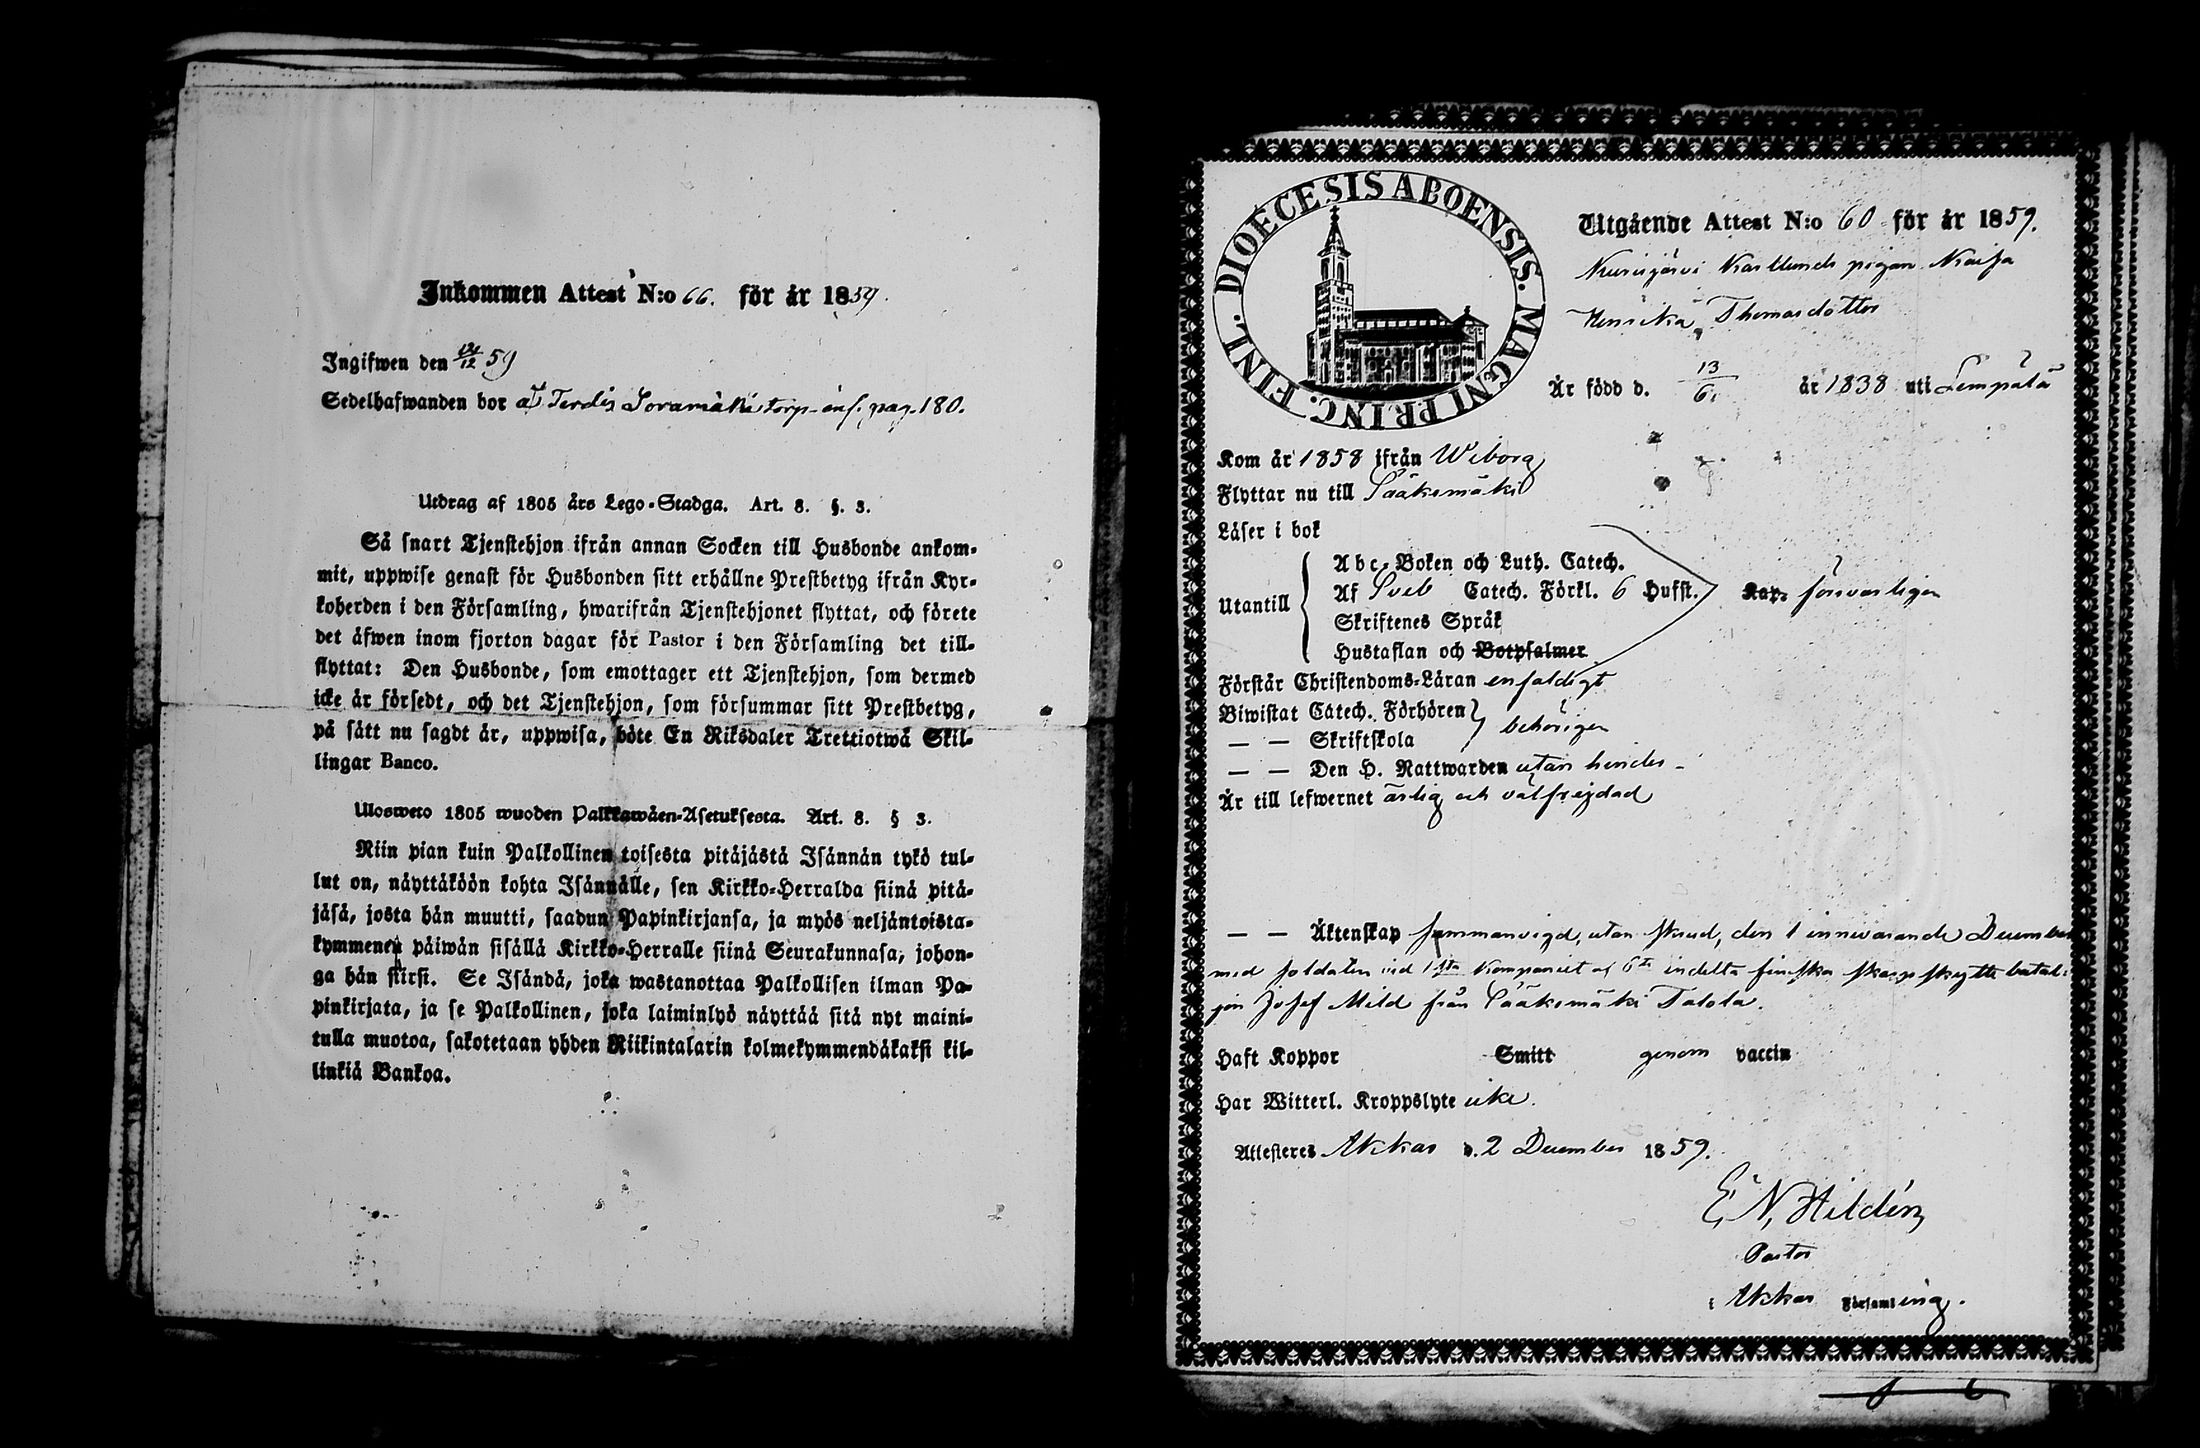 Inkommen Attest N:o 66. för år 1859.
Ingifwen den 12/12 59
Sedelhafwanden bor på Terdis Soramäki torp - inf. pag. 180.
Utdrag af 1805 års Lego-Stadga. Art. 8. §. 3.
Så snart Tjenstehjon ifrån annan Socken till Husbonde ankom-
mit, uppwise genast för Husbonden sitt erhållne Prestbetyg ifrån Kyr-
koherden i den Församling, hwarifrån Tjenstehjonet flyttat, och förete
det äfwen inom fjorton dagar för Pastor i den Församling det till-
flyttat: Den Husbonde, som emottager ett Tjenstehjon, som dermed
icke är försedt, och det Tjenstehjon, som försummar sitt Prestbetyg,
på sätt nu sagdt är, uppwisa, böte En Riksdaler Trettiotwå Skil-
lingar Banco.
Ulosweto 1805 wuoden Palkkawäen-Asetuksesta. Art. 8. § 3.
Niin pian kuin Palkollinen toisesta pitäjästä Isännän tykö tul-
lut on, näyttäköön kohta Isännälle, sen Kirkko-Herralda siinä pitä-
jäsä, josta hän muutti, saadun Papinkirjansa, ja myös neljäntoista-
kymmenen päiwän sisällä Kirkko-Herralle siinä Seurakunnasa, johon-
ga hän siirsi. Se Isändä, joka wastanottaa Palkollisen ilman Pa-
pinkirjata, ja se Palkollinen, joka laiminlyö näyttää sitä nyt maini-
tulla muotoa, sakotetaan yhden Riikintalarin kolmekymmendäkaksi kil-
linkiä Bankoa.
DIOECESIS ABOENSIS. MAGNI PRINC. FINL.
Utgående Attest N:o 60 för år 1859.
Kurisjärvi Karllunds pigan Kaisa
Henrika Thomasdotter
Är född d. 13/6. år 1838 uti Lempälä
Kom år 1858 ifrån Wiborg
Flyttar nu till Sääksmäki
Läser i bok
Utantill
Abc-Boken och Luth. Catech.
Af Sveb Catech. Förkl. 6 Hufst. Kap. försvarligen
Skriftenes Språk
Hustaflan och Botpsalmer
Förstår Christendoms-Läran enfaldigt
Biwistat Catech. Förhören } behörigen
— — Skriftskola
— — Den H. Nattwarden utan hinder -
Är till lefwernet ärlig och välfrejdad
— — Äktenskap sammanvigd, utan skrud, den 1 innevarande December
med soldaten vid 1sta Kompaniet af 6te indelta finska skarpskytte batal-
jon Josef Mild från Sääksmäki Talola.
Haft Koppor Smitt genom vaccin
Har Witterl. Kroppslyte icke.
Attesteres Akkas d. 2 December 1859.
E. N. Hildén
Pastor
i Akkas Församling.